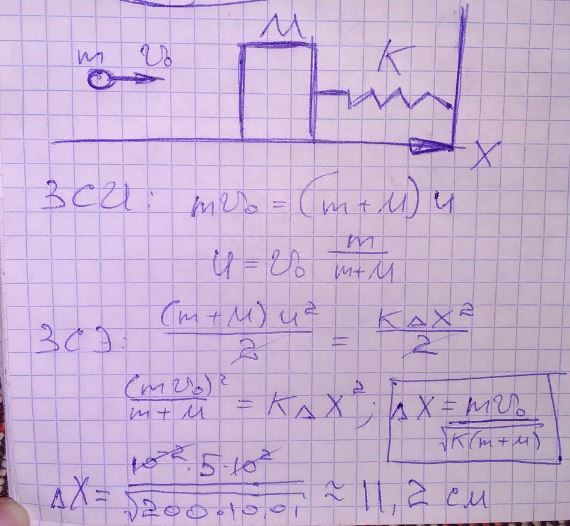 m v₀ M K
X
ЗСИ: mv₀ = (m+M) u
u = v₀ m/(m+M)
ЗСЭ: (m+M) u²/2 = KΔX²/2
(mv₀)²/(m+M) = KΔX²; ΔX = mv₀/√(K(m+M))
ΔX = 10⁻²·5·10²/√(200·10,01) ≈ 11,2 см